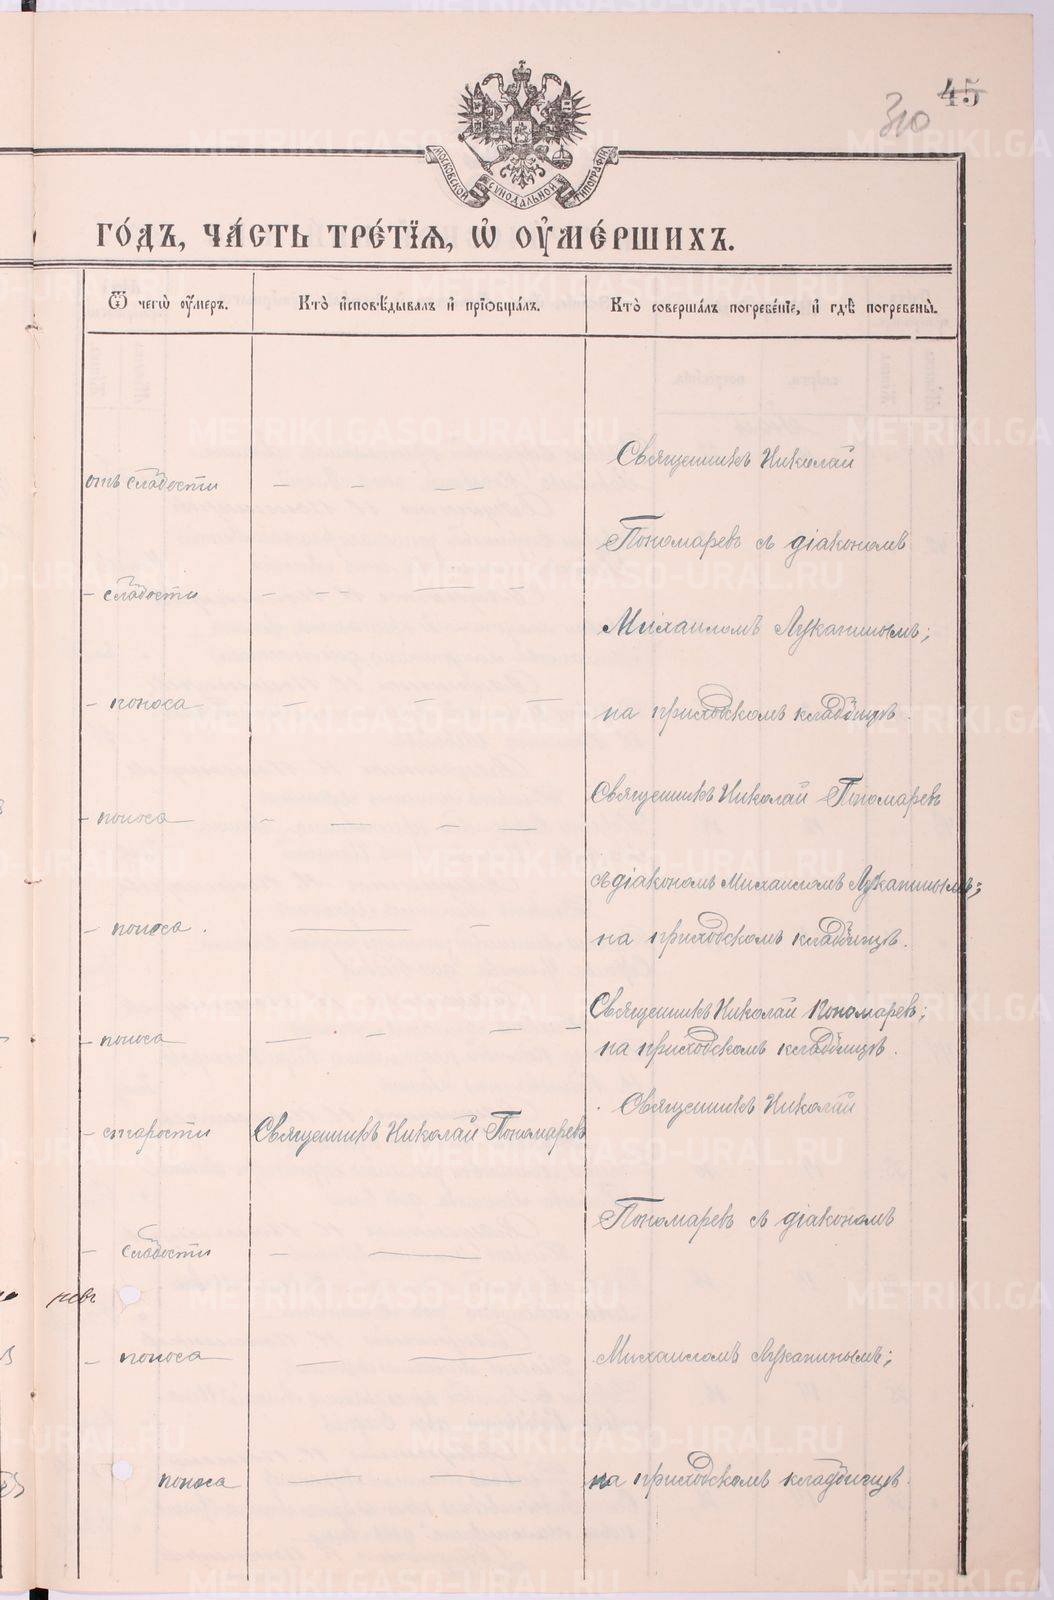 45
310
МОСКОВСКОЙ СѴНОДАЛЬНОЙ ТИПОГРАФІИ
ГО́ДЪ, ЧА́СТЬ ТРЕ́ТЇѦ, Ѡ҆ ОУ҆МЕ́РШИХЪ.
Ѿ чегѡ̀ оу҆́меръ.
Кто̀ и҆сповѣ́дывалъ и҆ прїѡбща́лъ.
Кто̀ соверша́лъ погребе́нїе, и҆ гдѣ̀ погребены̀.
Священникъ Николай
отъ слабости — — — —
Пономаревъ съ діакономъ
— слабости — — — — —
Михаиломъ Лукапинымъ;
— поноса — — —
на приходскомъ кладбищѣ.
Священникъ Николай Пономаревъ
— поноса — — — —
съ діакономъ Михаиломъ Лукапинымъ;
— поноса. — —
на приходскомъ кладбищѣ.
Священникъ Николай Пономаревъ;
— поноса — — — —
на приходскомъ кладбищѣ.
Священникъ Николай
— старости Священникъ Николай Пономаревъ
Пономаревъ съ діакономъ
— слабости — —
ревъ
— поноса — —
Михаиломъ Лукапинымъ;
поноса — —
на приходскомъ кладбищѣ.
METRIKI.GASO-URAL.RU